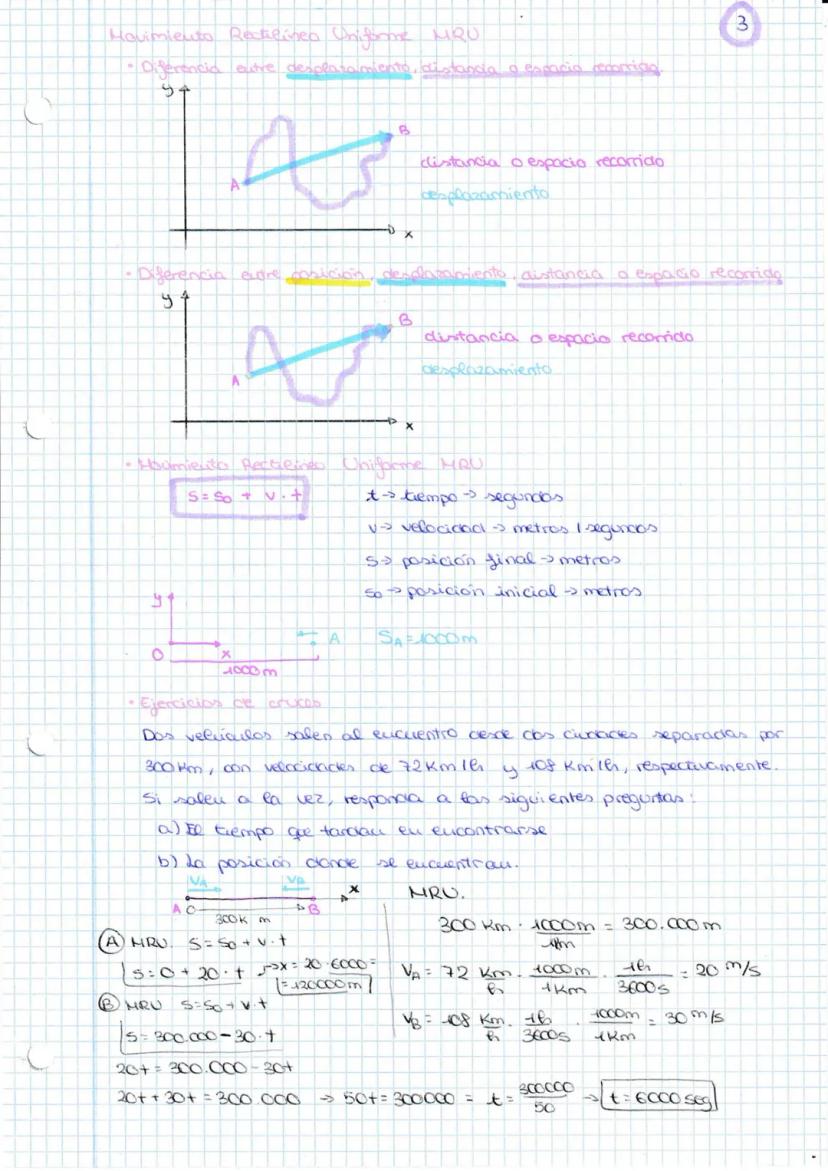 3
Movimiento Rectilíneo Uniforme MRU
• Diferencia entre desplazamiento, distancia o espacio recorrido
y
B
A
distancia o espacio recorrido
desplazamiento
x
• Diferencia entre posición, desplazamiento, distancia o espacio recorrido
y
B
distancia o espacio recorrido
A
desplazamiento
x
• Movimiento Rectilíneo Uniforme MRU
S = S0 + v · t
t → tiempo → segundos
v → velocidad → metros / segundos
S → posición final → metros
S0 → posición inicial → metros
y
O
x
1000 m
A
SA = 1000 m
• Ejercicios de cruces
Dos vehículos salen al encuentro desde dos ciudades separadas por
300 Km, con velocidades de 72 Km/h y 108 Km/h, respectivamente.
Si salen a la vez, responda a las siguientes preguntas:
a) El tiempo que tardan en encontrarse
b) La posición donde se encuentran.
VA VB
x
A O B
300 K m
MRU.
300 Km · 1000 m / 1Km = 300.000 m
VA = 72 Km/h · 1000 m / 1 Km · 1h / 3600 s = 20 m/s
VB = 108 Km/h · 1h / 3600 s · 1000 m / 1 Km = 30 m/s
A MRU. S = S0 + v · t
S = 0 + 20 · t → x = 20 · 6000 =
= 120000 m
B MRU S = S0 + v · t
S = 300.000 - 30 · t
20t = 300.000 - 30t
20t + 30t = 300.000 → 50t = 300000 = t = 300000 / 50 → t = 6000 seg